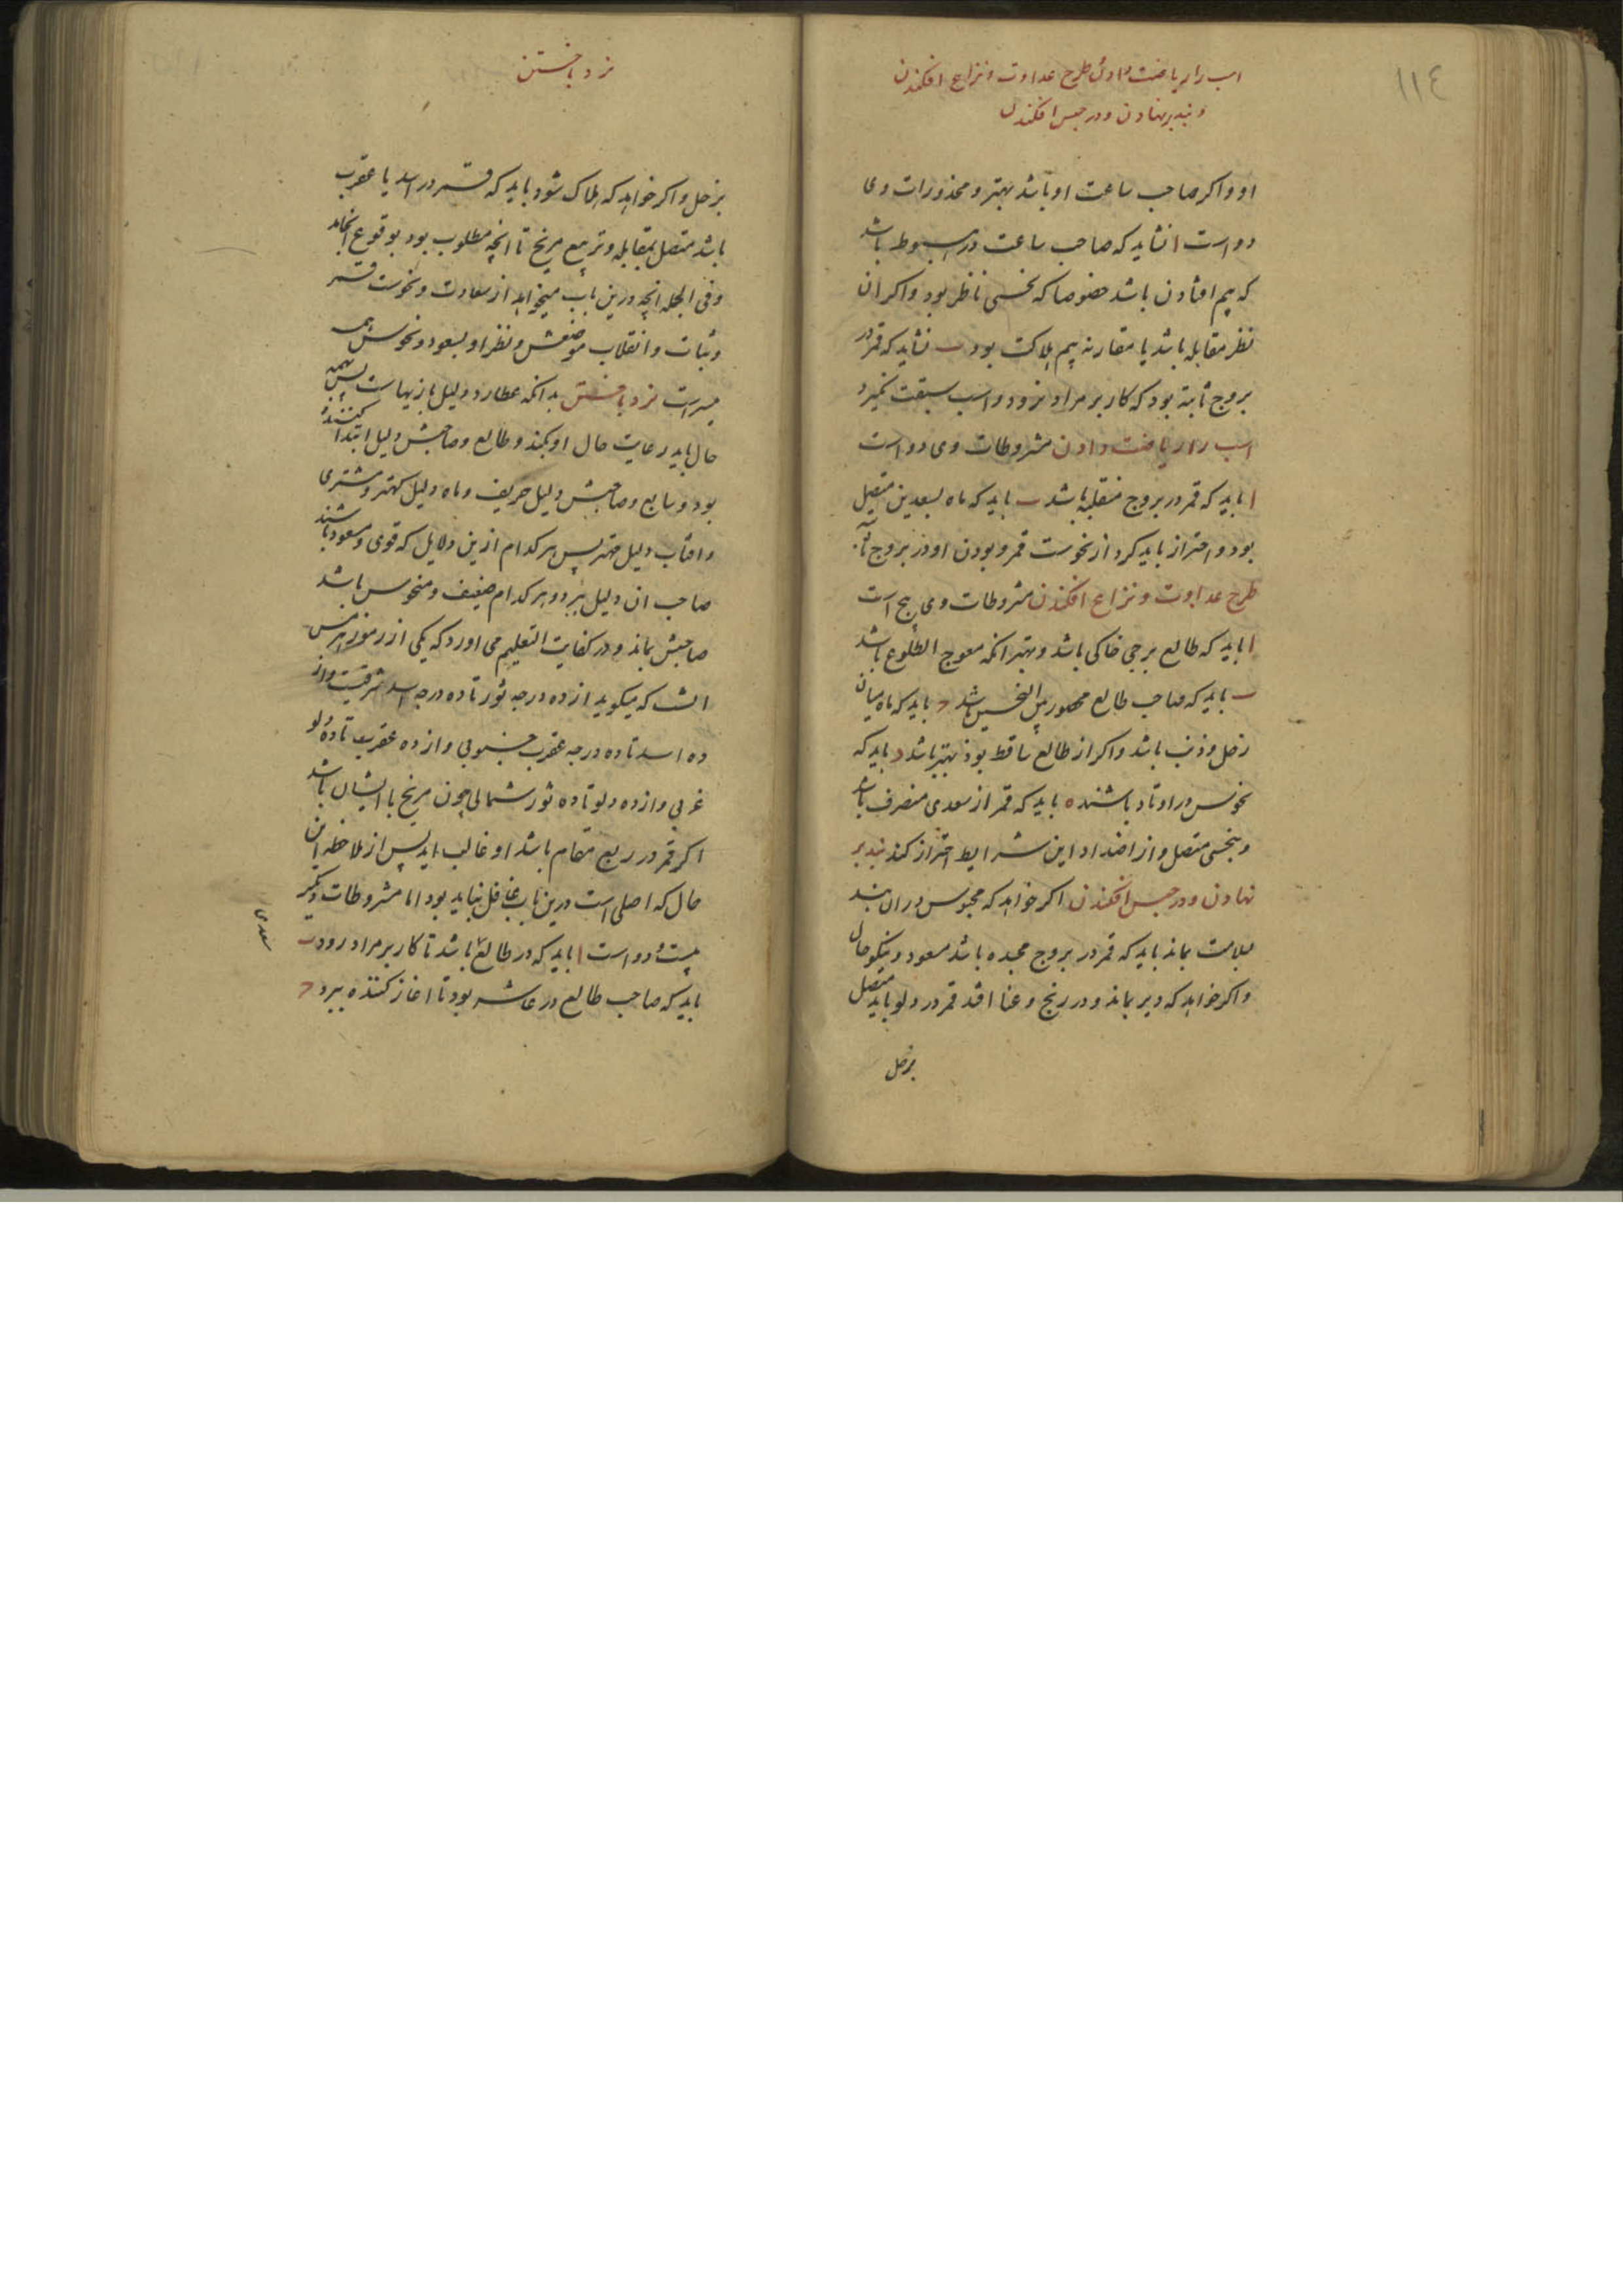 ١١٤
اسب را ریاضت دادن طرح عداوت و نزاع افکندن
و بند برنهادن و در حبس افکندن
او و اکر صاحب ساعت او باشد بهتر و محذورات وی
دو است ا نشاید که صاحب ساعت در هبوط باشد
که بیم افتادن باشد خصوصا که نحسی ناظر بود و اکر ان
نظر مقابله باشد یا مقارنه بیم هلاکت بود ب نشاید که قمر در
بروج ثابته بود که کار بر مراد نرود و اسب سبقت نکیرد
اسب را ریاضت دادن مشروطات وی دو است
ا باید که قمر در بروج منقلبه باشد ب باید که ماه بسعدین متصل
بود و احتراز باید کرد از نحوست قمر و بودن او در بروج ثابته
طرح عداوت و نزاع افکندن مشروطات وی پنج است
ا باید که طالع برجی خاکی باشد و بهتر انکه معوج الطلوع باشد
ب باید که صاحب طالع محصور بین النحسین باشد ج باید که ماه میان
زحل و ذنب باشد و اکر از طالع ساقط بود بهتر باشد د باید که
نحوس در اوتاد باشند ه باید که قمر از سعدی منصرف باشد
و بنحسی متصل و از اضداد این شرایط احتراز کند بند بر
نهادن و در حبس افکندن اکر خواهد که محبوس در ان بند
بسلامت بماند باید که قمر در بروج مجسده باشد مسعود و نیکو حال
و اکر خواهد که دیر بماند و در رنج و عنا افتد قمر در دلو باید متصل
بزحل
نرد باختن
بزحل و اکر خواهد که هلاک شود باید که قمر در اسد یا عقرب
باشد متصل بمقابله و تربیع مریخ تا انچه مطلوب بود بوقوع انجامد
و فی الجمله انچه درین باب میخواهد از سعادت و نحوست قمر
و ثبات و انقلاب موضعش و نظر او بسعود و نحوس همه
میسر است نرد باختن بدانکه عطارد دلیل بازیهاست پس بهمه
حال باید رعایت حال او بکند و طالع و صاحبش دلیل ابتدا کننده
بود و سابع و صاحبش دلیل حریف و ماه دلیل کهتر و مشتری
و افتاب دلیل مهتر پس هر کدام ازین دلایل که قوی و مسعود باشند
صاحب ان دلیل ببرد و هر کدام ضعیف و منحوس باشد
صاحبش بماند و در کفایت التعلیم می اورد که یکی از رموز هرمس
انست که میکوید از ده درجه ثور تا ده درجه اسد شرقیت و از
ده اسد تا ده درجه عقرب جنوبی و از ده عقرب تا ده دلو
غربی و از ده دلو تا ده ثور شمالی چون مریخ با ایشان باشد
اکر قمر در ربع مقام باشد او غالب اید پس از ملاحظه این
حال که اصلی است درین باب غافل نباید بود اما مشروطات دیکر
بیست و دو است ا باید که در طالع باشد تا کار بر مراد رود ب
باید که صاحب طالع در عاشر بود تا اغاز کننده ببرد ج
سعدی